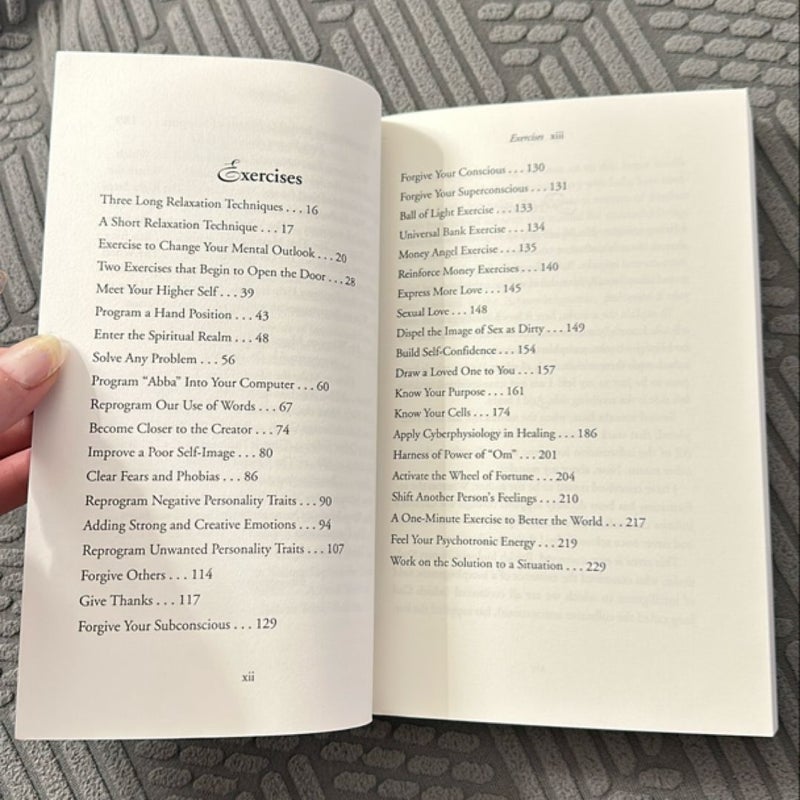 Exercises
Three Long Relaxation Techniques . . . 16
A Short Relaxation Technique . . . 17
Exercise to Change Your Mental Outlook . . . 20
Two Exercises that Begin to Open the Door . . . 28
Meet Your Higher Self . . . 39
Program a Hand Position . . . 43
Enter the Spiritual Realm . . . 48
Solve Any Problem . . . 56
Program “Abba” Into Your Computer . . . 60
Reprogram Our Use of Words . . . 67
Become Closer to the Creator . . . 74
Improve a Poor Self-Image . . . 80
Clear Fears and Phobias . . . 86
Reprogram Negative Personality Traits . . . 90
Adding Strong and Creative Emotions . . . 94
Reprogram Unwanted Personality Traits . . . 107
Forgive Others . . . 114
Give Thanks . . . 117
Forgive Your Subconscious . . . 129
xii
Exercises xiii
Forgive Your Conscious . . . 130
Forgive Your Superconscious . . . 131
Ball of Light Exercise . . . 133
Universal Bank Exercise . . . 134
Money Angel Exercise . . . 135
Reinforce Money Exercises . . . 140
Express More Love . . . 145
Sexual Love . . . 148
Dispel the Image of Sex as Dirty . . . 149
Build Self-Confidence . . . 154
Draw a Loved One to You . . . 157
Know Your Purpose . . . 161
Know Your Cells . . . 174
Apply Cyberphysiology in Healing . . . 186
Harness of Power of “Om” . . . 201
Activate the Wheel of Fortune . . . 204
Shift Another Person's Feelings . . . 210
A One-Minute Exercise to Better the World . . . 217
Feel Your Psychotronic Energy . . . 219
Work on the Solution to a Situation . . . 229